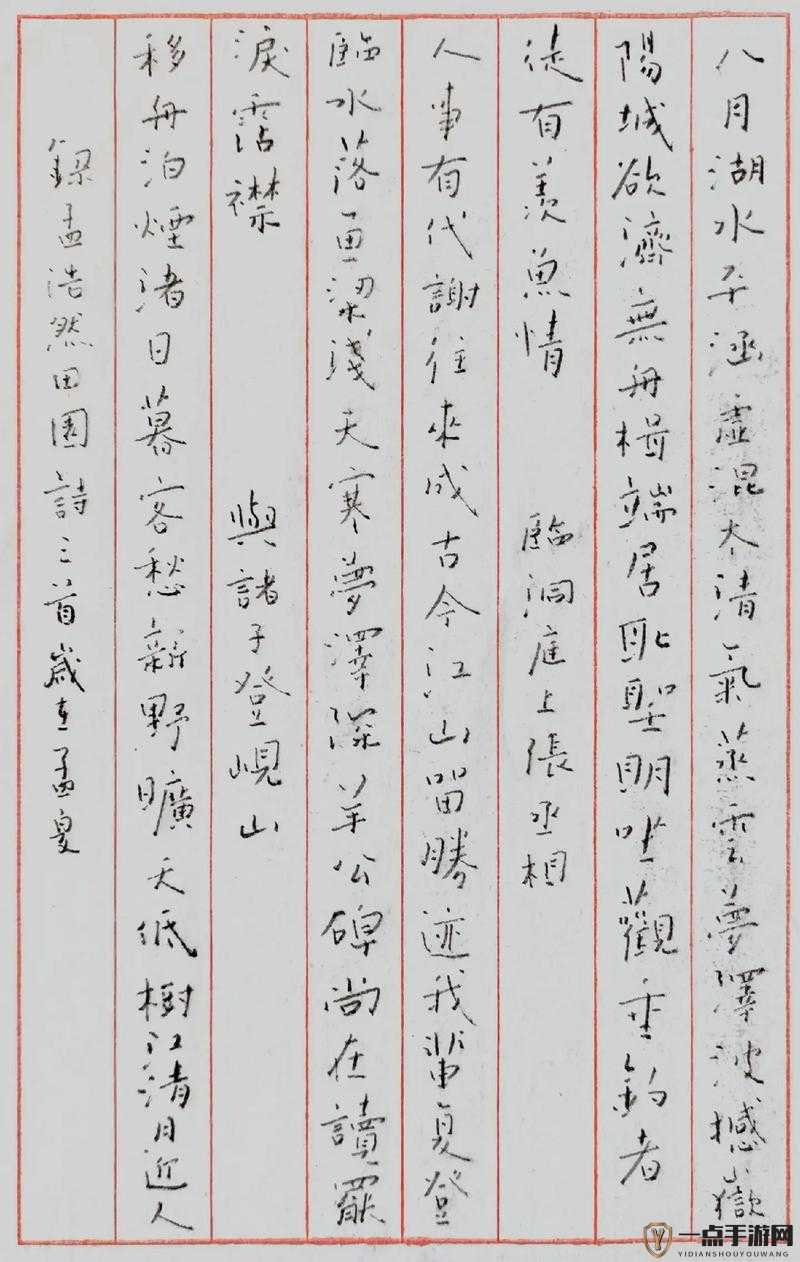 八月湖水平涵虛混太清氣蒸雲夢澤波撼嶽
陽城欲濟無舟楫端居恥聖明坐觀垂釣者
徒有羨魚情 臨洞庭上張丞相
人事有代謝往來成古今江山留勝迹我輩复登
臨水落魚梁淺天寒夢澤深羊公碑尚在讀罷
淚霑襟 與諸子登峴山
移舟泊煙渚日暮客愁新野曠天低樹江清月近人
錄孟浩然田園詩三首歲在孟夏
一点手游网
YIDIANSHOUYOUWANG